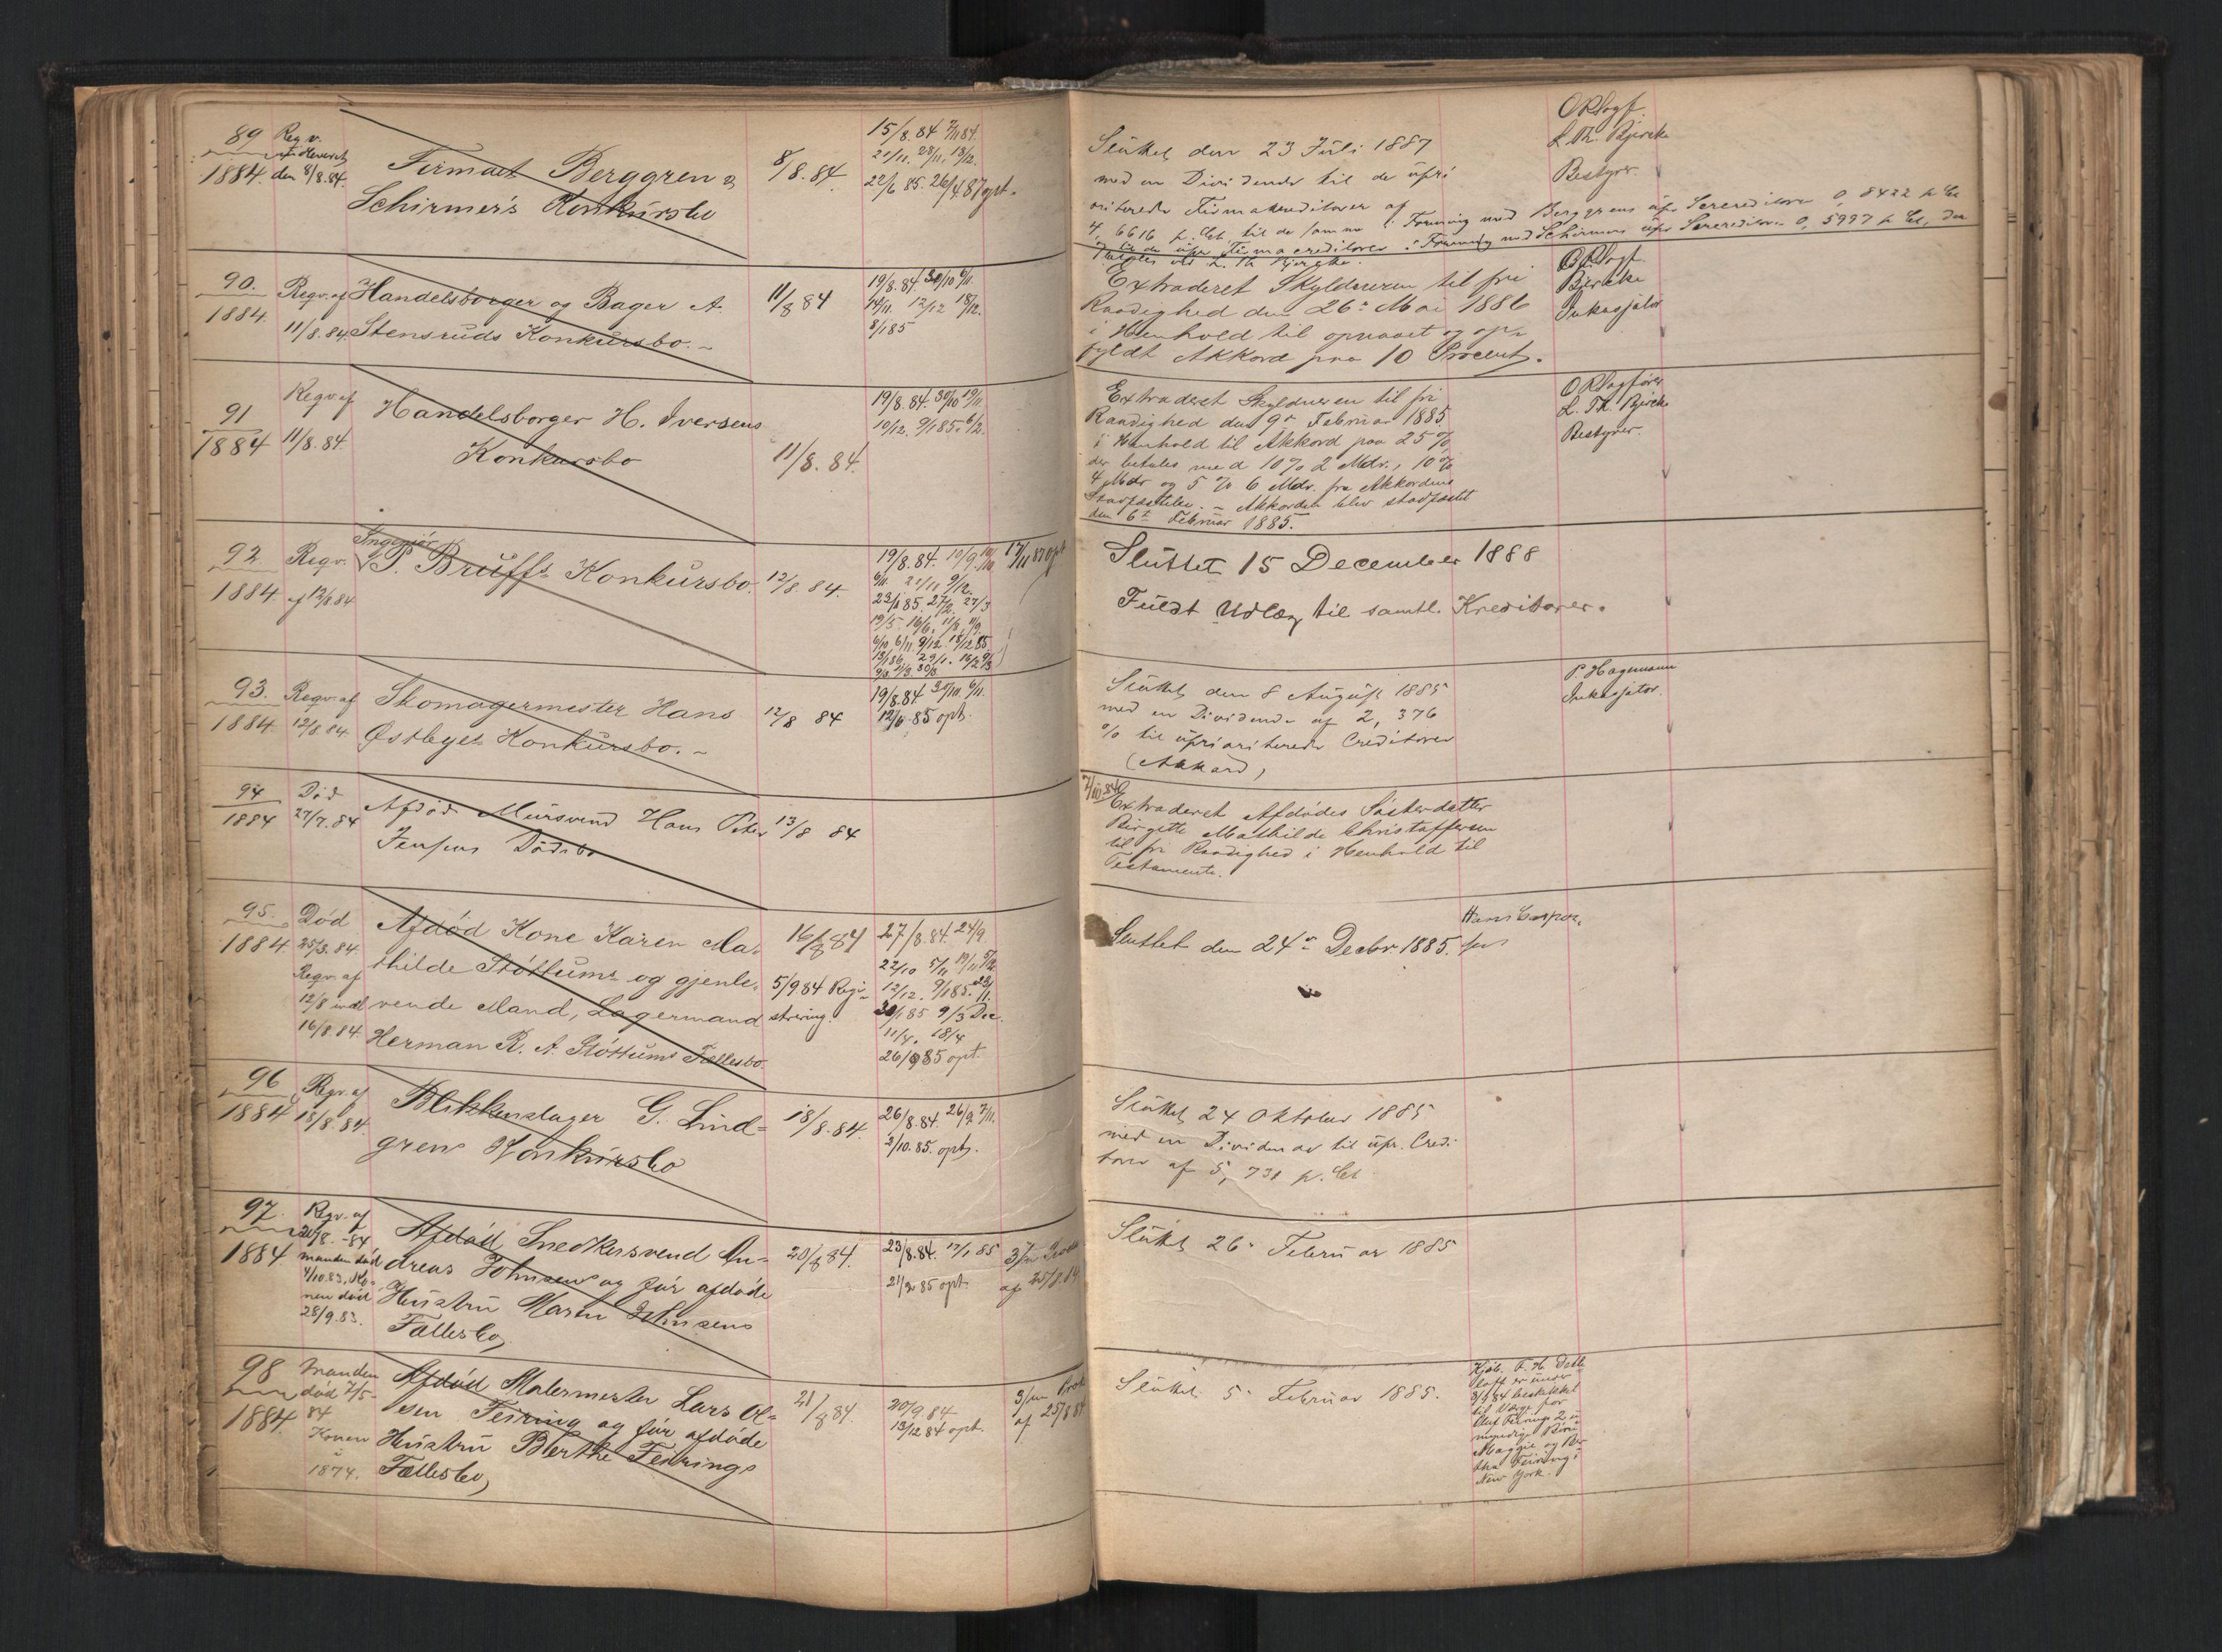 89 Reqv.
af Heveret
1884. den 8/8.84.
Firmaet Berggren &
Schirmer's Konkursbo
8/8.84.
15/8.84. 7/11 84.
21/11. 28/11. 13/12.
22/6 85. 26/4 87 opt.
Sluttet den 23 Juli 1887
med en Dividende til de upri
oriterede Firmakreditorer af
4,6616 p. Ct, til de samme i Forening med Berggrens upr Særcreditorer 0,8422 p Ct
og til de upr Firmacreditorer i Forening med Schirmers upr Særcreditorer 0,5997 p Ct, der
L. Th. Bjercke.
ORSagf.
L. Th. Bjercke
Bestyrer.
90. Reqv. af Handelsborger og Bager A.
1884. 11/8.84. Stensruds Konkursbo.
11/8 84
19/8.84. 30/10 6/11.
14/11. 12/12 18/12.
8/1 85
Extraderet Skyldneren til fri
Raadighed den 26de Mai 1886
i Henhold til opnaaet og op-
fyldt Akkord paa 10 Procent.
ORSagf.
Bjercke
Inkassator
91 Reqv af
1884 11/8.84.
Handelsborger H. Iversens
Konkursbo
11/8.84.
19/8.84. 30/10 19/11.
10/12. 9/1 85. 6/2.
Extraderet Skyldneren til fri
Raadighed den 9de Februar 1885
i Henhold til Akkord paa 25 %
der betales med 10 % 2 Mdr., 10 %
4 Mdr og 5 % 6 Mdr. fra Akkordens
Stadfæstelse. – Akkorden blev stadfæstet
den 6te Februar 1885.
ORSagfører
L. Th. Bjercke
Bestyrer.
92 Reqv.
1884. af 12/8.84
Ingeniør
P. Bruffs Konkursbo.
12/8.84.
19/8.84. 10/9. 17/11 87 opt
Sluttet 15 December 1888
Fuldt Udlæg til samtl. Kreditorer.
93. Reqv. af
1884. 12/8.84.
Skomagermester Hans
Østbyes Konkursbo.
12/8 84
19/8.84 6/11.
85 opt.
Sluttet den 8 August 1885
med en Dividende af 2,376
% til upriariterede Creditorer
(Akkord)
P. Hagemann
Inkassator.
94 Död
1884 27/7.84
Afdöd Mursvend Hans Peter
Jensens Dödsbo
13/8 84
7/10 84
Extraderet Afdödes Sösterdatter
Birgitte Mathilde Christoffersen
til fri Raadighed i Henhold til
Testamente.
95. Död
1884. 25/3.84.
Reqv. af
12/8 indk
16/8.84.
Afdöd Kone Karen Ma-
thilde Stöttums og gjenle-
vende Mand, Lagermand
Herman R. A. Stöttums Fællesbo.
16/8 84
5/9 84 Regi-
strering.
27/8.84. 24/9
22/10 5/11 19/11
12/12. 9/1 85.
30/1 85 9/3 Dec.
11/4. 18/4
26/9 85 opt.
Sluttet den 24de Decbr. 1885.
96 Reqv. af
1884 18/8.84.
Blikkenslager G. Lind-
grens Konkursbo
18/8.84.
26/8.84. 26/9 7/11.
2/10.85. opt.
Sluttet 24 Oktober 1885
med en Dividende til upr. Credi
torer af 5,731 p. Ct
97. Reqv. af
20/8. -84
1884. manden död
4/10.83, Ko-
nen död
28/9.83.
Afdöd Snedkersvend An-
dreas Johnsens og för afdöde
Hustru Marte Johnsens
Fællesbo,
20/8 84.
23/8.84. 17/1 85
21/2 85 opt.
af 25/8.84
Sluttet 26. Februar 1885
98 Manden
död 7/5-
1884. 84
Konen
1874.
Afdöd Malermester Lars Ol-
sen Feiring og för afdöde
Hustru Berthe Feirings
Fællesbo,
21/8 84.
20/9.84
13/12 84 opt.
af 25/8 84
Sluttet 5. Februar 1885.
er under
beskikket
til Værge for
Olaf Feirings 2 u-
myndige Börn
Maggie og Ber-
tha Feiring i
New York.